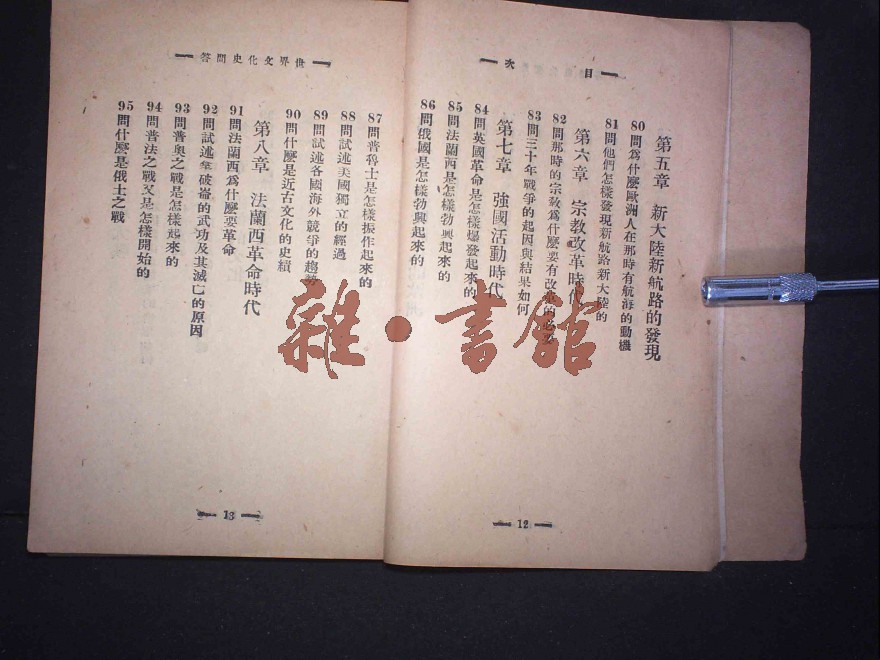 目 次
第五章 新大陸新航路的發現
80問爲什麼歐洲人在那時有航海的動機
81問他們怎樣發現新航路新大陸的
第六章 宗教改革時代
82問那時的宗教爲什麼要有改革的
83問三十年戰爭的起因與結果如何
第七章 強國活動時代
84問英國革命是怎樣爆發起來的
85問法蘭西是怎樣勃興起來的
86問俄國是怎樣勃興起來的
12
世界文化史問答
87問普魯士是怎樣振作起來的
88問試述美國獨立的經過
89問試述各國海外競爭的趨勢
90問什麼是近古文化的史績
第八章 法蘭西革命時代
91問法蘭西爲什麼要革命
92問試述拿破崙的武功及其滅亡的原因
93問普奧之戰是怎樣起來的
94問普法之戰又是怎樣開始的
95問什麼是俄土之戰
13
雜·書館